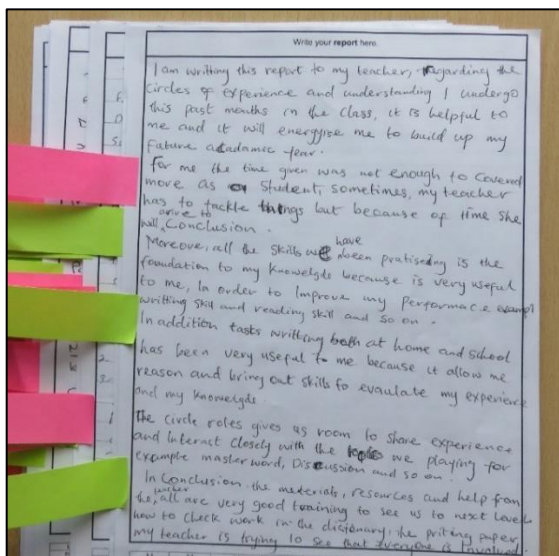 Write your report here.
I am writting this report to my teacher, regarding the
circles of experience and understanding I undergo
this past months in the class, it is helpful to
me and it will energyise me to build up my
Future acadamic year.
For me the time given was not enough to Covered
more as a student, sometimes, my teacher
has to tackle things but because of time she
will arive to Conclusion.
Moreover, all the skills we have been pratiseing is the
foundation to my Knowelgde because is very useful
to me, In order to Improve my performace exampl
writting skill and reading skill and so on.
In addition tasks writting both at home and school
has been very useful to me because it allow me
reason and bring out skills to evaulate my experience
and my knowelgde.
The Circle roles gives us room to share experience
and Interact closely with the role we playing for
example masterword, Discussion and so on.
In Conclusion the materials, resources and help from
the teacher, all are very good training to see us to next Level
how to check work in the dictionary, the priting paper,
my teacher is trying to see that everyone is involved